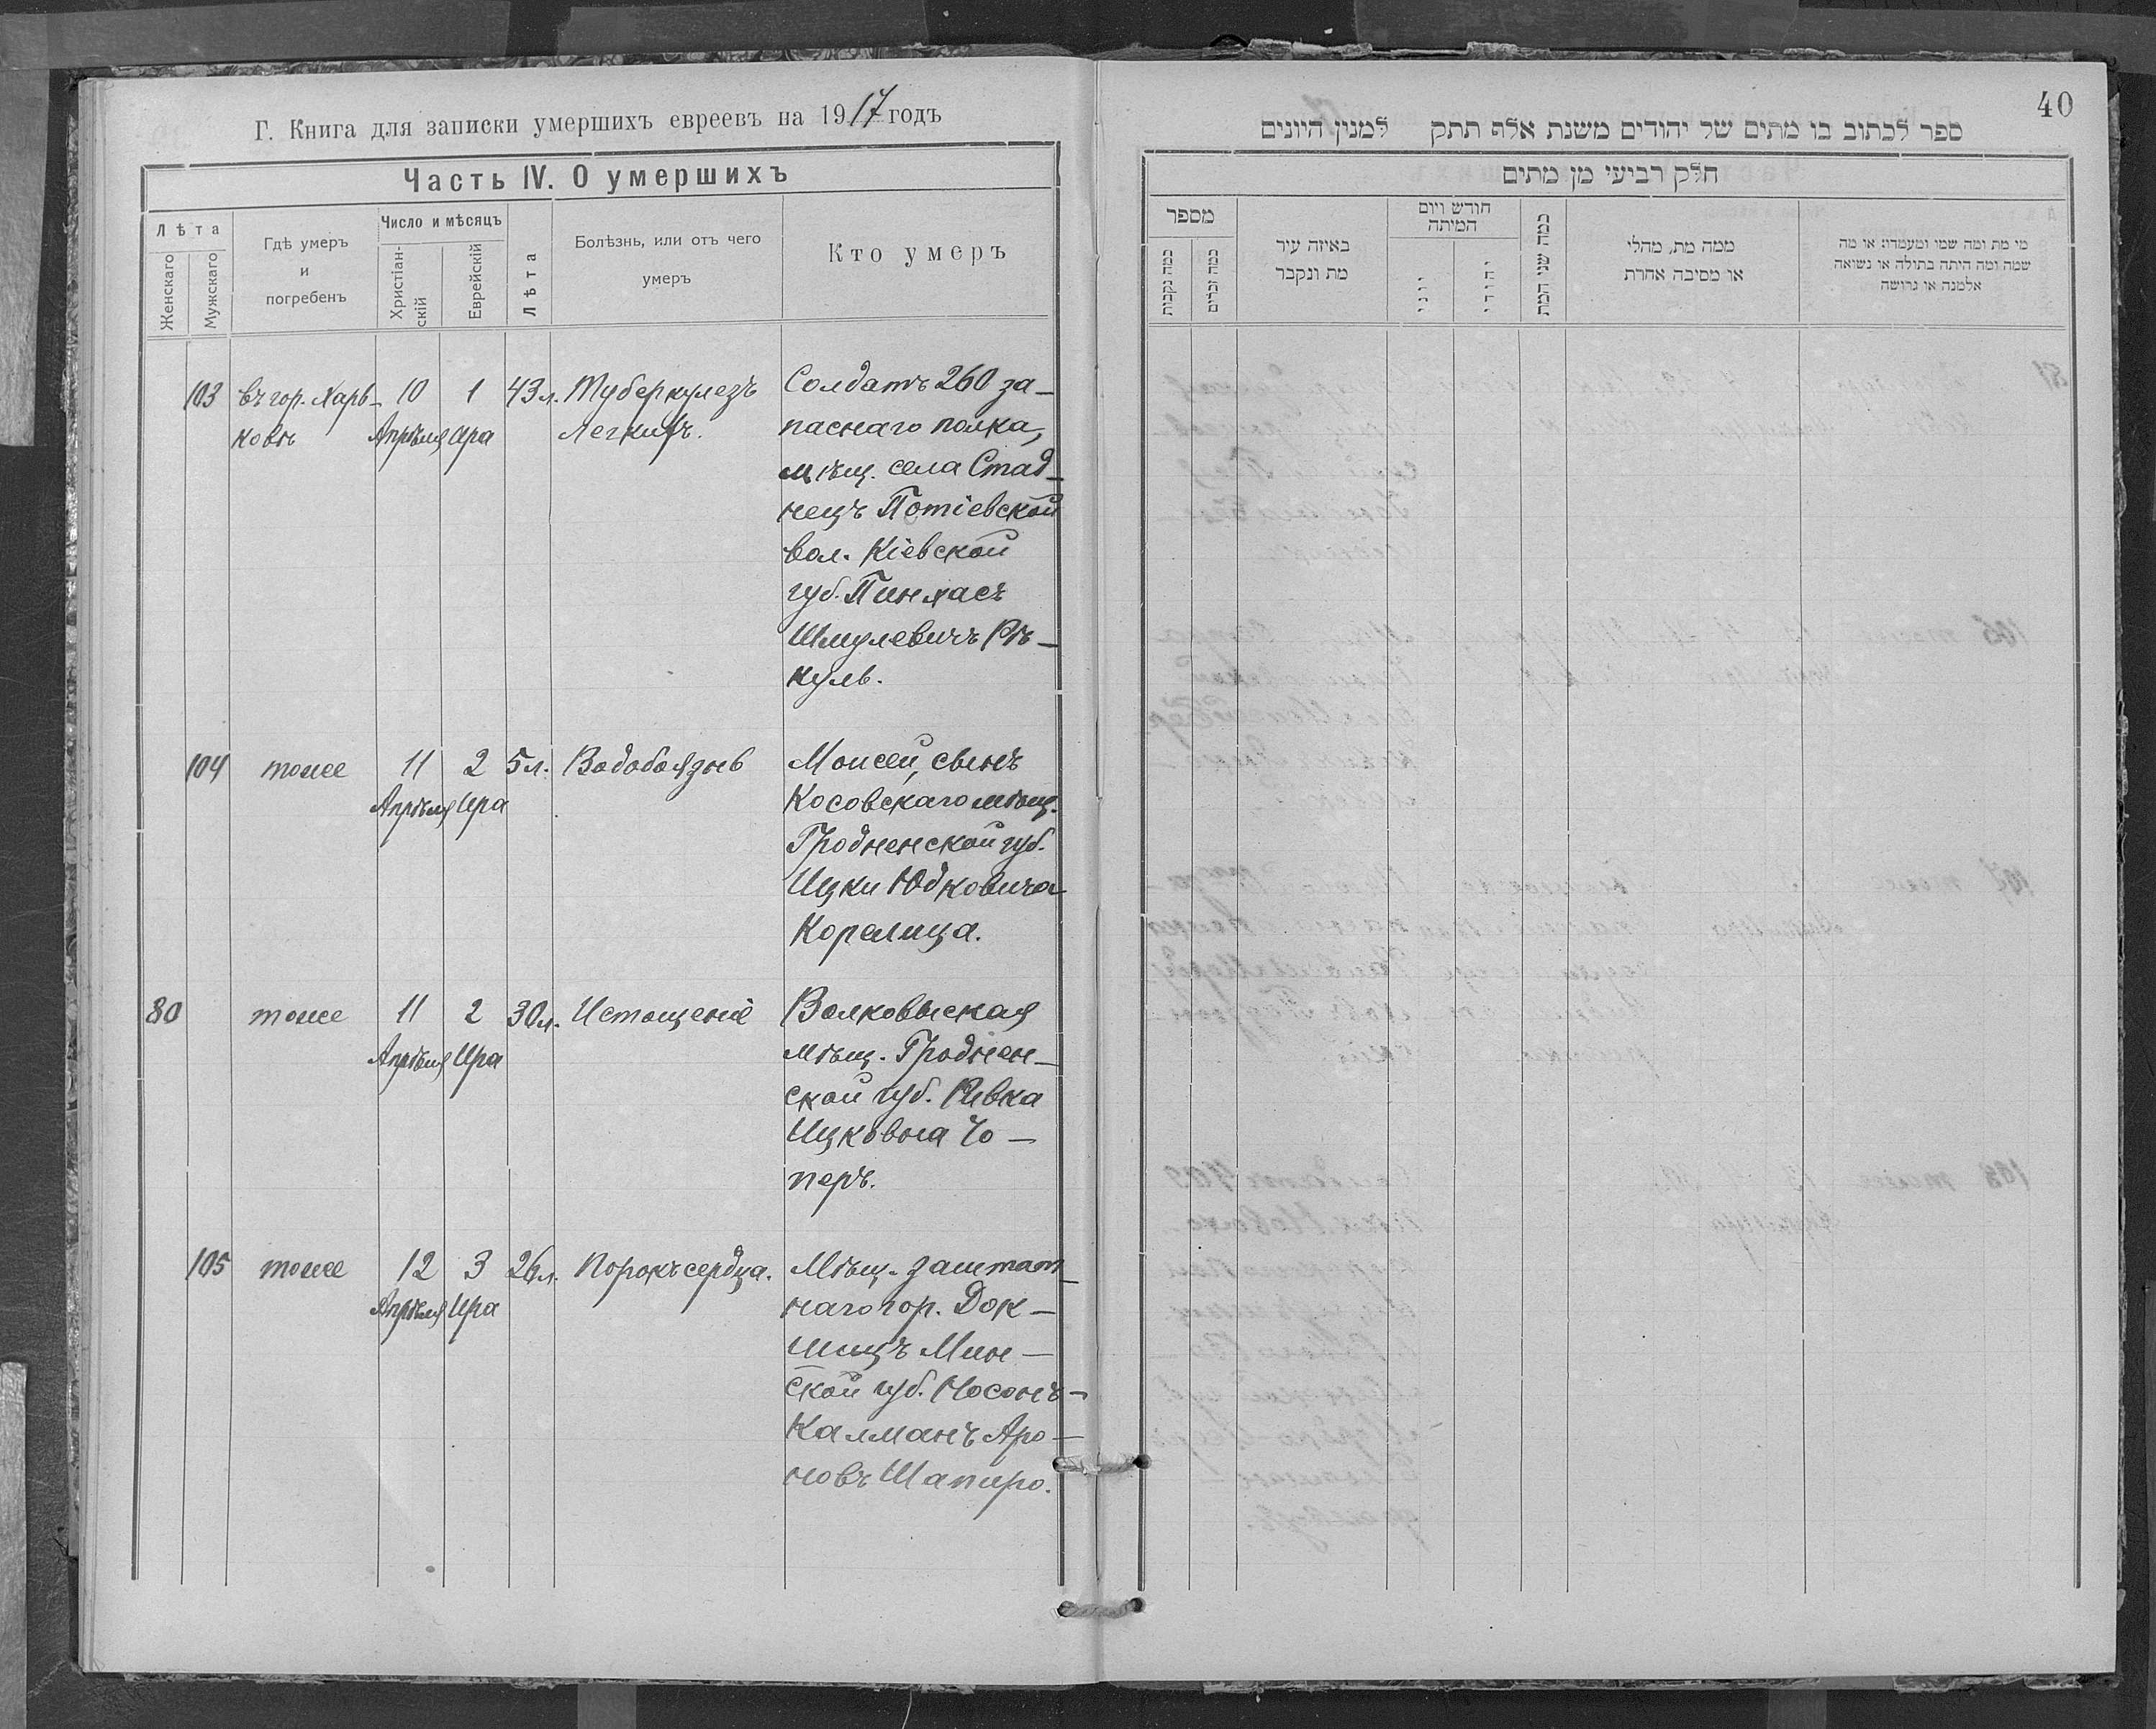 Г. Книга для записки умершихъ евреевъ на 1917 годъ
Часть IV. О умершихъ
Лѣта
Женскаго
Мужскаго
Гдѣ умеръ
и
погребенъ
Число и мѣсяцъ
Христіан-
скій
Еврейскій
Лѣта
Болѣзнь, или отъ чего
умеръ
Кто умеръ
103 въ гор. Харь- 10 1 43 л. Туберкулезъ Солдатъ 260 за-
ковѣ Апрѣля Ира легкихъ. паснаго полка,
мѣщ. села Стад-
нецъ Потіевской
вол. Кіевской
губ. Пинхасъ
Шмулевичъ Рѣ-
куль.
104 тоже 11 2 5 л. Водобоязнь Моисей, сынъ
Апрѣля Ира Косовскаго мѣщ.
Гродненской губ.
Ицки Юдковича
Корелица.
80 тоже 11 2 30 л. Истощеніе Волковыская
Апрѣля Ира мѣщ. Гроднен-
ской губ. Ривка
Ицковна Чо-
перъ.
105 тоже 12 3 26 л. Порокъ сердца. Мѣщ. заштат-
Апрѣля Ира наго гор. Док-
шицъ Мин-
ской губ. Носонъ-
Калманъ Аро-
новъ Шапиро.
40
ספר לכתוב בו מתים של יהודים משנת אלף תתק למנין היונים
חלק רביעי מן מתים
מספר
כמה נקבות
כמה זכרים
באיזה עיר
מת ונקבר
חודש ויום
המיתה
יוני
יהודי
כמה שני המת
ממה מת, מהלי
או מסיבה אחרת
מי מת ומה שמו ומעמדו: או מה
שמה ומה היתה בתולה או נשואה
אלמנה או גרושה